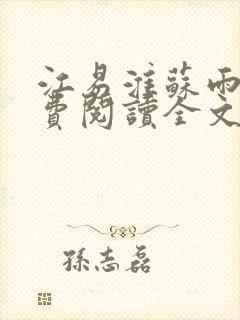 江易淮蘇雨
費閱讀全文
孫志磊